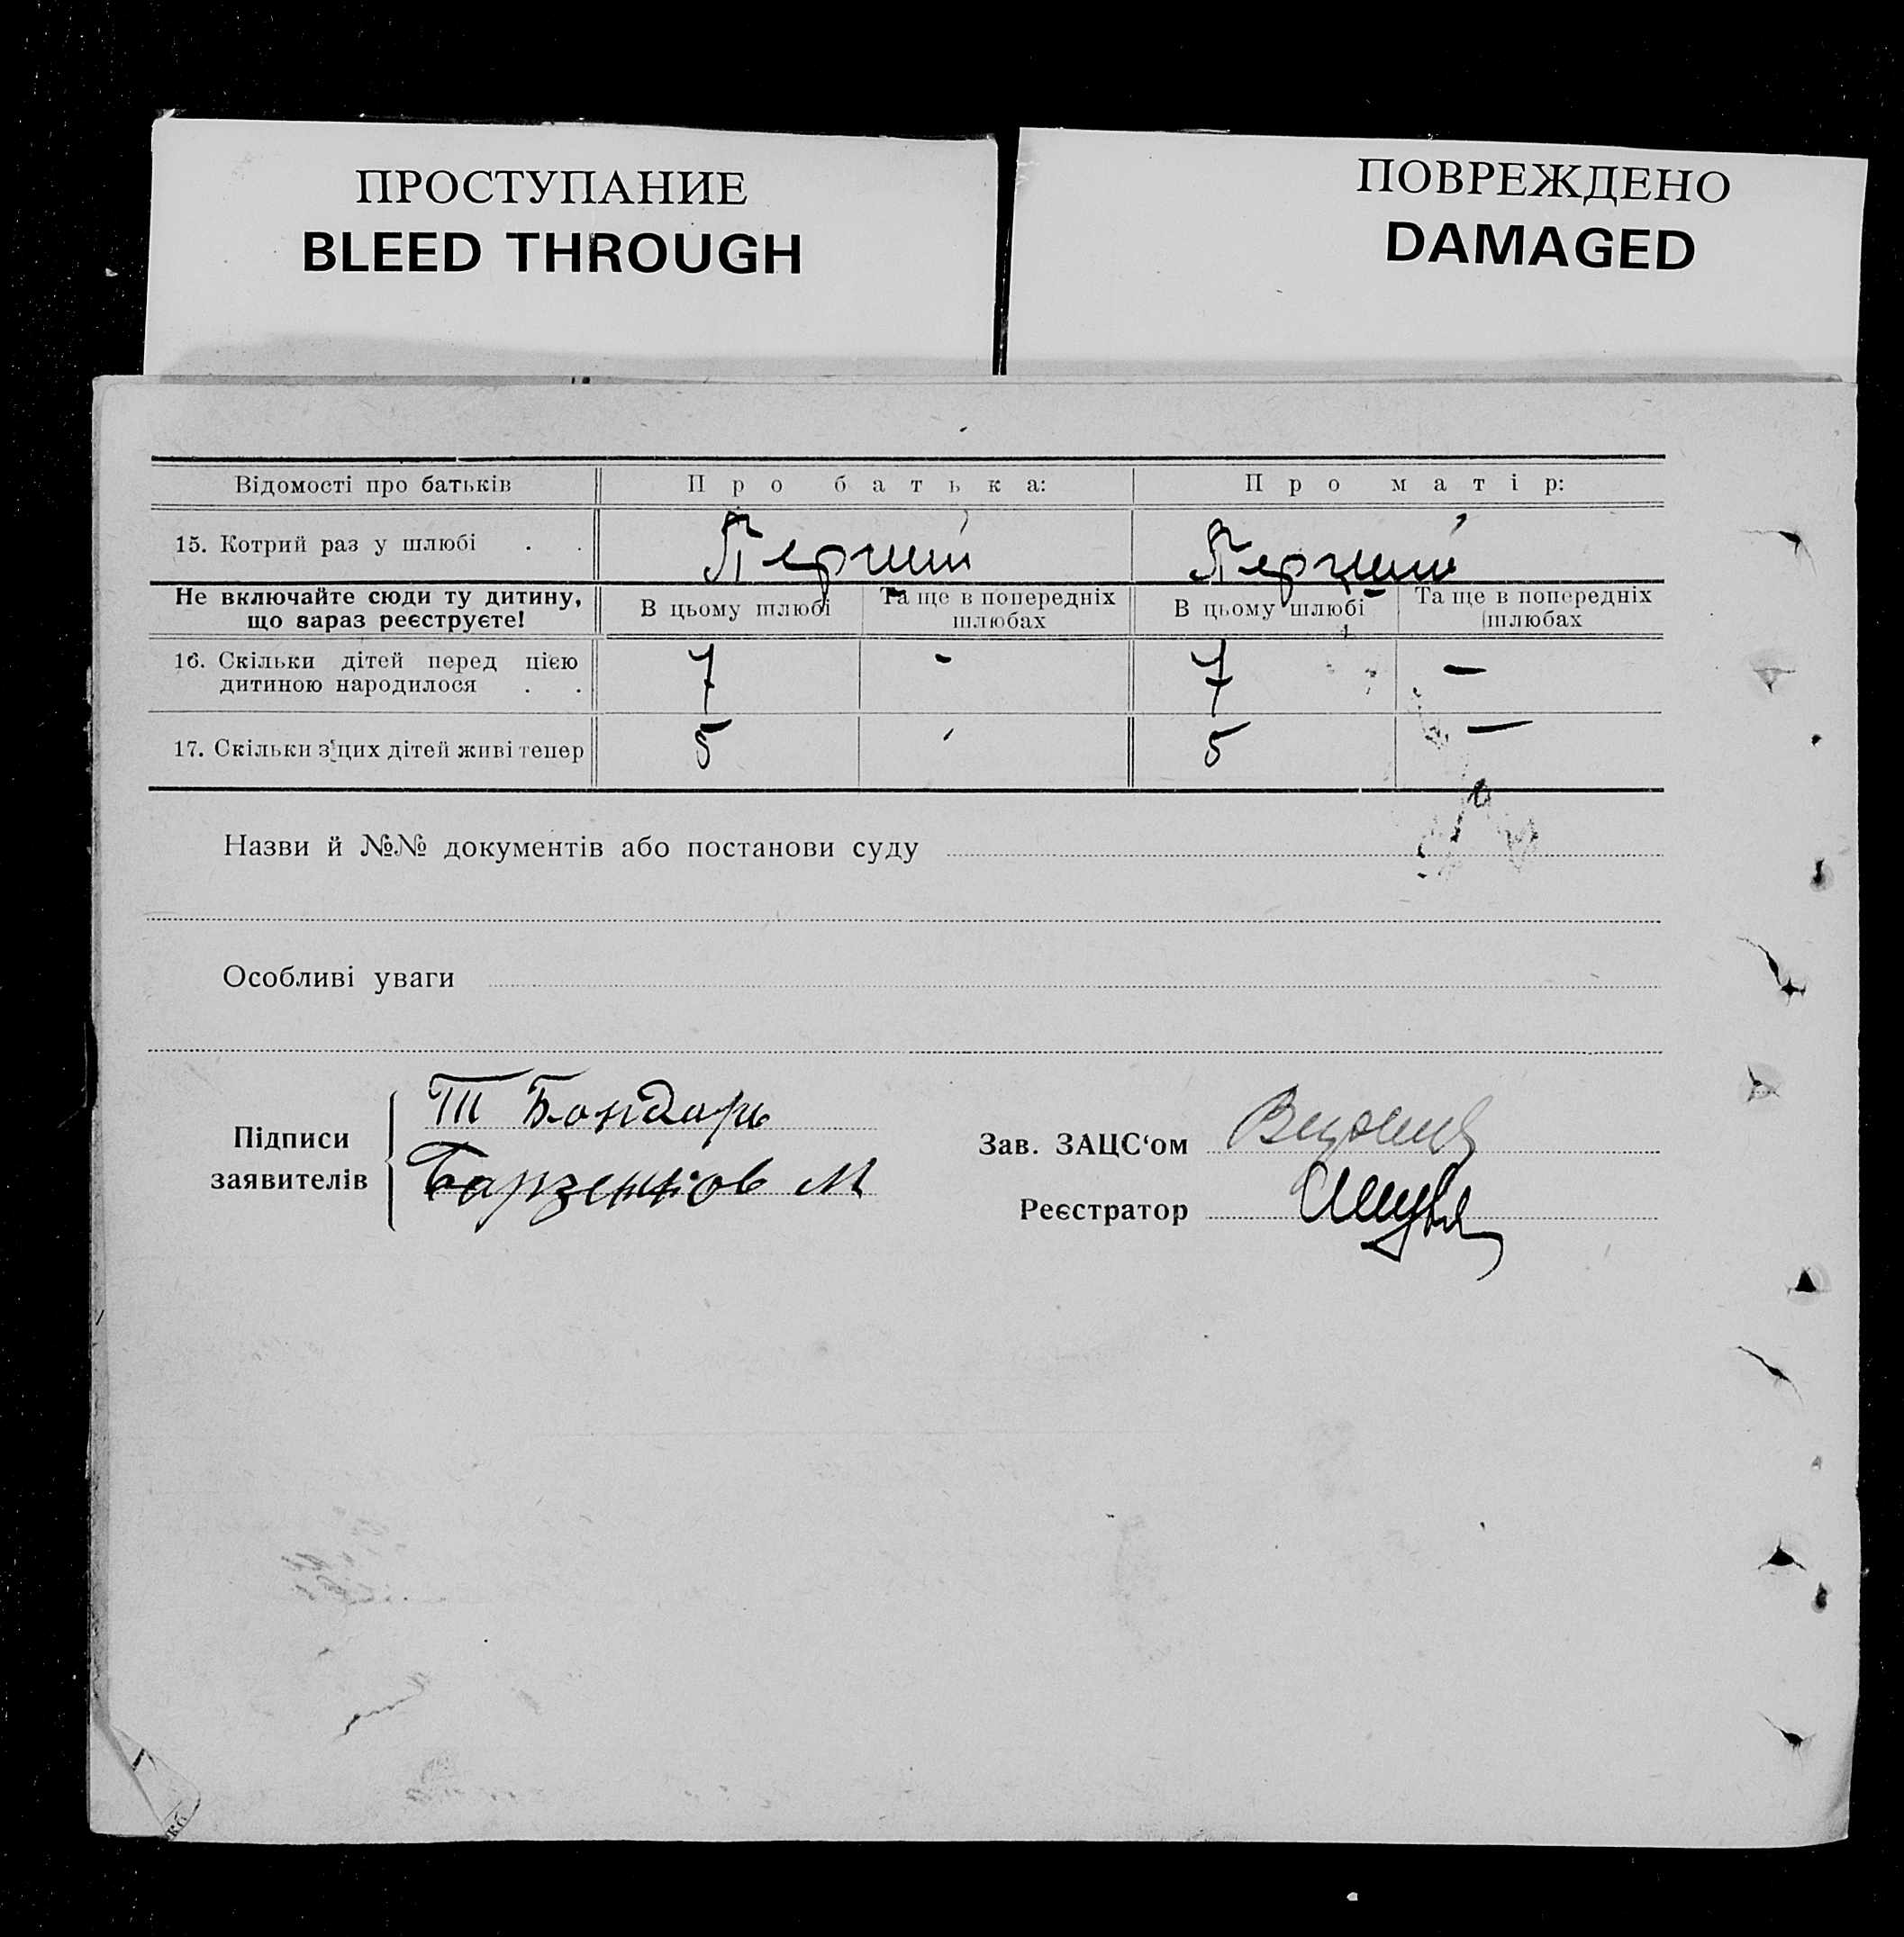 ПРОСТУПАНИЕ
BLEED THROUGH
ПОВРЕЖДЕНО
DAMAGED
Відомості про батьків Про батька: Про матір:
15. Котрий раз у шлюбі . . Перший Перший
Не включайте сюди ту дитину, що зараз реєструєте! В цьому шлюбі Та ще в попередніх шлюбах В цьому шлюбі Та ще в попередніх шлюбах
16. Скільки дітей перед цією дитиною народилося . . 7 - 7 —
17. Скільки з цих дітей живі тепер 5 - 5 —
Назви й №№ документів або постанови суду
Особливі уваги
Підписи заявителів
Т Бондарь
М
Зав. ЗАЦС‘ом
Реєстратор